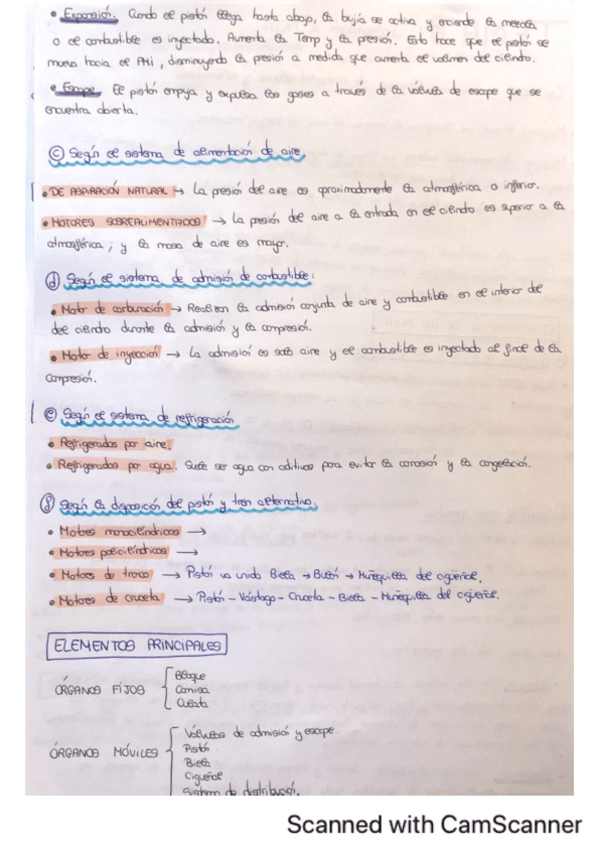 • Expansión. Cuando el pistón llega hasta abajo, la bujía se activa y enciende la mezcla
o el combustible es inyectado. Aumenta la Temp y la presión. Esto hace que el pistón se
mueva hacia el PMi, disminuyendo la presión a medida que aumenta el volumen del cilindro.
• Escape. El pistón empuja y expulsa los gases a través de la válvula de escape que se
encuentra abierta.
c) Según el sistema de alimentación de aire.
• DE ASPIRACIÓN NATURAL → La presión del aire es aproximadamente la atmosférica o inferior.
• MOTORES SOBREALIMENTADOS → La presión del aire a la entrada en el cilindro es superior a la
atmosférica; y la masa de aire es mayor.
d) Según el sistema de admisión de combustible:
• Motor de carburación → Realizan la admisión conjunta de aire y combustible en el interior del
del cilindro durante la admisión y la compresión.
• Motor de inyección → La admisión es solo aire y el combustible es inyectado al final de la
compresión.
e) Según el sistema de refrigeración
• Refrigerados por aire.
• Refrigerados por agua. Suele ser agua con aditivos para evitar la corrosión y la congelación.
f) Según la disposición del pistón y tren alternativo.
• Motores monocilíndricos →
• Motores policilíndricos →
• Motores de tronco → Pistón va unido Biela → Bulón → Muñequilla del cigüeñal.
• Motores de cruceta → Pistón - Vástago - Cruceta - Biela - Muñequilla del cigüeñal.
ELEMENTOS PRINCIPALES
ÓRGANOS FIJOS
Bloque
Camisa
Culata
ÓRGANOS MÓVILES
Válvulas de admisión y escape.
Pistón
Biela
Cigüeñal
Sistema de distribución.
Scanned with CamScanner